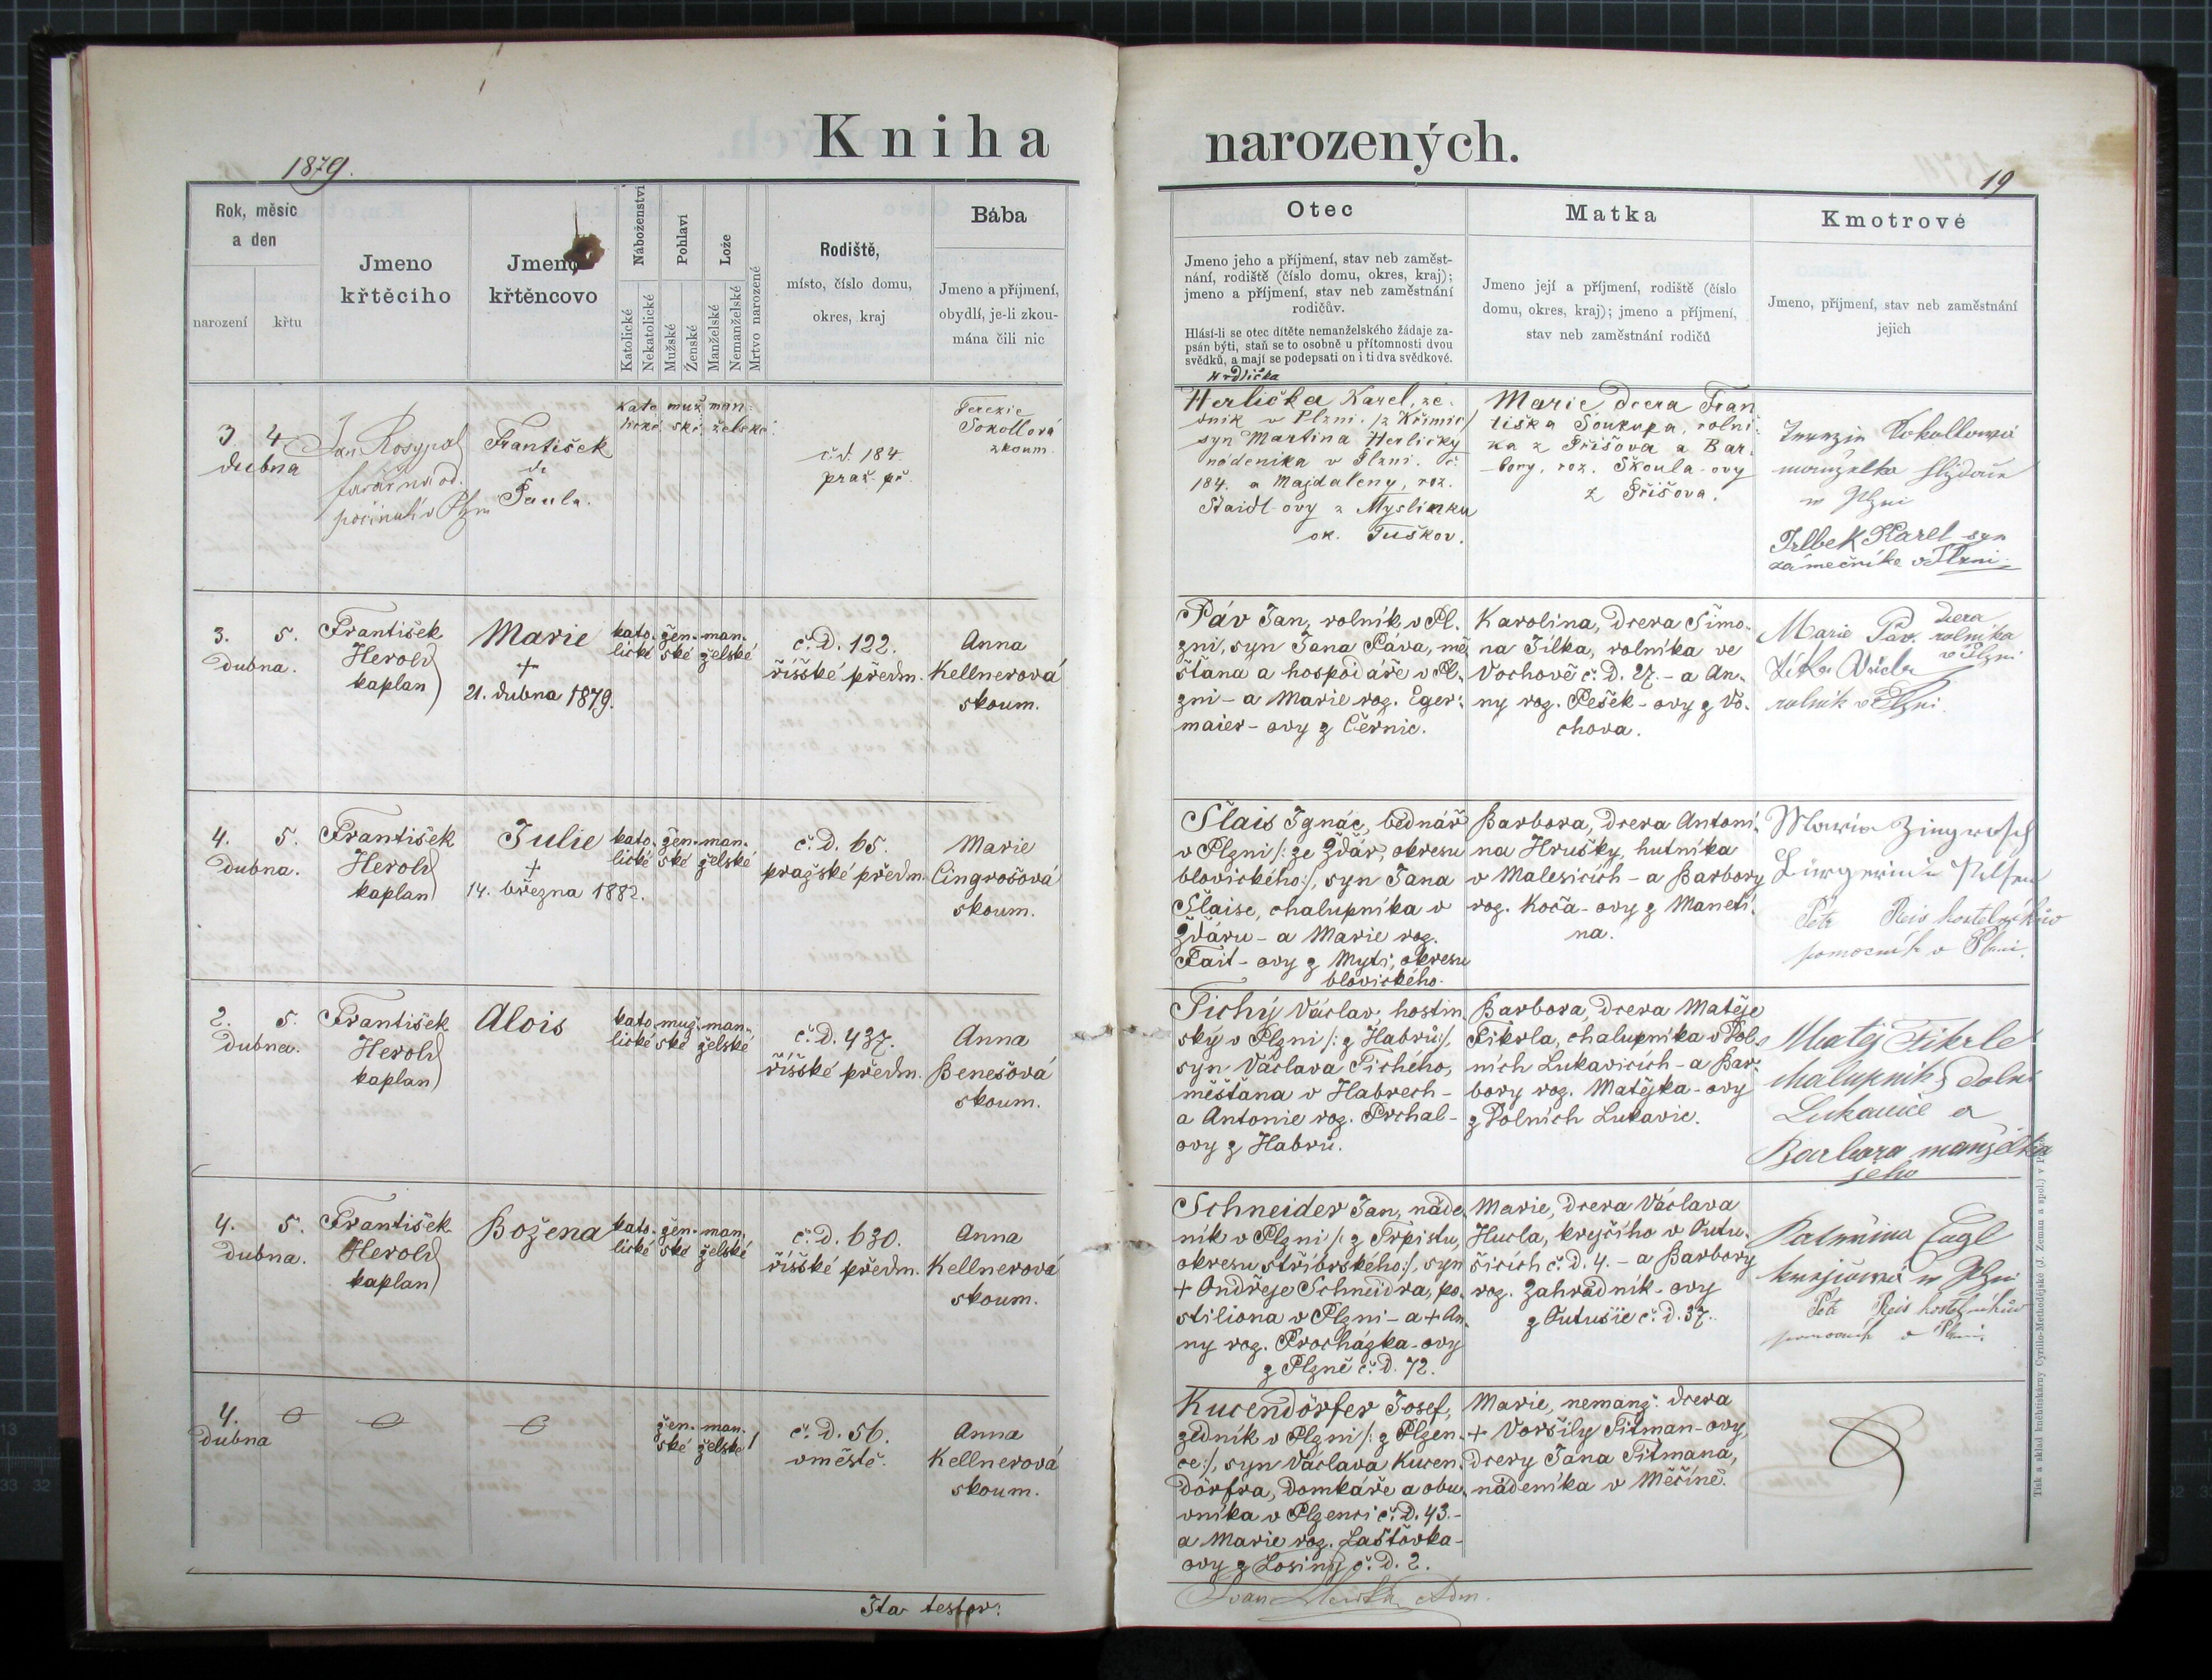 Kniha narozených.
1879.
19
Rok, měsíc
a den
narození
křtu
Jmeno
křtěcího
Jmeno
křtěncovo
Náboženství
Katolické
Nekatolické
Pohlaví
Mužské
Ženské
Lože
Manželské
Nemanželské
Mrtvo narozené
Rodiště,
místo, číslo domu,
okres, kraj
Bába
Jmeno a příjmení,
obydlí, je-li zkou-
mána čili nic
Otec
Jmeno jeho a příjmení, stav neb zaměst-
nání, rodiště (číslo domu, okres, kraj);
jmeno a příjmení, stav neb zaměstnání
rodičův.
Hlásí-li se otec dítěte nemanželského žádaje za-
psán býti, staň se to osobně u přítomnosti dvou
svědků, a mají se podepsati on i ti dva svědkové.
Matka
Jmeno její a příjmení, rodiště (číslo
domu, okres, kraj); jmeno a příjmení,
stav neb zaměstnání rodičů
Kmotrové
Jmeno, příjmení, stav neb zaměstnání
jejich
3 4
dubna
Jan Rosypal
farář na od.
počinutí v Plzni
František
de
Paula.
kato muž man-
lické ské želské
č.d. 184.
praž. př.
Terezie
Sokollová
zkoum.
Hrdlička
Herlička Karel, ze-
dník v Plzni /z Křimic/
syn Martina Herličky
nádeníka v Plzni. č.
184. a Majdaleny, roz.
Staidl-ovy z Myslinku
ok. Tuškov.
Marie dcera Fran
tiška Soukupa, rolní-
ka z Příšova a Bar-
bory, roz. Škoula-ovy
z Příšova.
manželka
v Plzni
Irlbek Karel syn
zámečníka v Plzni
3. 5.
dubna.
František
Herold
kaplan
Marie
+
21. dubna 1879.
kato- žen- man-
lické ské želské
č. d. 122.
říšské předm.
Anna
Kellnerová
zkoum.
Páv Jan, rolník v Pl-
zni, syn Jana Páva, mě-
šťana a hospodáře v Pl-
zni - a Marie roz. Eger-
maier-ovy z Černic.
Karolina, dcera Šimo-
na Jílka, rolníka ve
Vochově č. d. 27. - a An-
ny roz. Pešek-ovy z Vo-
chova.
Marie Pav. dcera
rolníka
v Plzni
rolník v Plzni
4. 5.
dubna.
František
Herold
kaplan
Julie
+
14. března 1882.
kato- žen- man-
lické ské želské
č. d. 65.
pražské předm.
Marie
Cingrošová
zkoum.
Šlais Ignác, bednář
v Plzni /: ze Žďár, okresu
blovického:/, syn Jana
Šlaise, chalupníka v
Žďáru - a Marie roz.
Fait-ovy z Myti, okresu
blovického.
Barbora, dcera Antoni-
na Hrušky, hutníka
v Malesicích - a Barbory
roz. Koča-ovy z Maneti-
na.
Maria Zingrosch
Bürgerin in Pilsen
Petr Reis kostelníkův
pomocník v Plzni.
2. 5.
dubna.
František
Herold
kaplan
Alois
kato- muž- man-
lické ské želské
č. d. 437.
říšské předm.
Anna
Benešová
zkoum.
Tichý Václav, hostin-
ský v Plzni /: z Habrů:/,
syn Václava Tichého,
měšťana v Habrech -
a Antonie roz. Prchal-
ovy z Habrů.
Barbora, dcera Matěje
Fikrla, chalupníka v Dol-
ních Lukavicích - a Bar-
bory roz. Matějka-ovy
z Dolních Lukavic.
Matěj Fikrle
chalupník z Dolní
Lukavice a
Barbora manželka
jeho
4. 5.
dubna.
František
Herold
kaplan
Božena
kato- žen- man-
lické ské želské
č. d. 630.
říšské předm.
Anna
Kellnerová
zkoum.
Schneider Jan, náde-
ník v Plzni /: z Trpistu,
okresu stříbrského:/, syn
+ Ondřeje Schneidra, po-
stiliona v Plzni - a + An-
ny roz. Procházka-ovy
z Plzně č. d. 72.
Marie, dcera Václava
Hucla, krejčího v Outu-
šicích č. d. 4. - a Barbory
roz. Zahradník-ovy
z Outušic č. d. 37.
v Plzni
Petr Reis kostelníkův
pomocník v Plzni.
4.
dubna
žen- man-
ské želské 1
č. d. 56.
v městě.
Anna
Kellnerová
zkoum.
Kucendörfer Josef,
zedník v Plzni /: z Plzen-
ce:/, syn Václava Kucen-
dörfra, domkáře a obu-
vníka v Plzenci č. d. 43. -
a Marie roz. Laštovka-
ovy z Losiny č. d. 2.
Marie, nemanž. dcera
+ Voršily Pitman-ovy,
dcery Jana Pitmana,
nádeníka v Měčíně.
Ita testor:
Adm.
Tisk a sklad knihtiskárny Cyrillo-Methodějské (J. Zeman a spol.) v